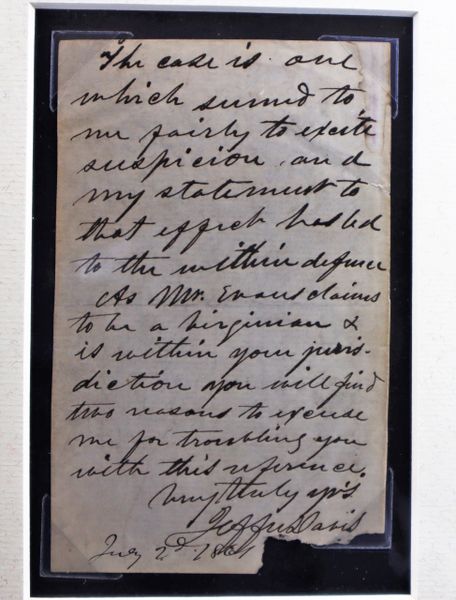 The case is one
which seemed to
me fairly to excite
suspicion and
my statement to
that effect has led
to the within defence
As Mr. Evans claims
to be a Virginian &
is within your juris-
diction you will find
two reasons to excuse
me for troubling you
with this reference.
Very truly yrs
Jeffn Davis
July 2d 1861